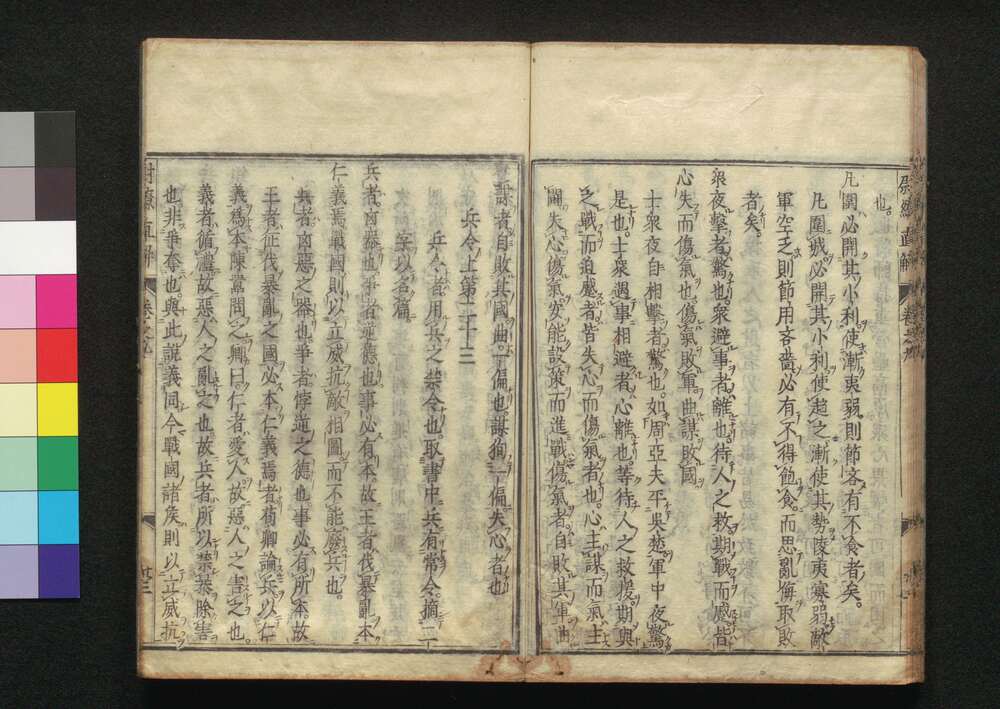 尉繚直解　卷之九
也。
凡圍必開其小利使漸夷弱則節吝有不食者矣。
凡圍城必開其小利使趨之漸使其勢陵夷寡弱敵
軍空乏則節用吝嗇必有不得飽食而思亂侮取敗
者矣。
衆夜擊者驚也。衆避事者離也。待人之救。期戰而蹙皆
心失而傷氣也。傷氣敗軍曲謀敗國
士衆夜自相擊者驚也。如周亞夫平吳楚。軍中夜驚
是也。士衆遇事相避者心離也。等待人之救援。期與
之戰而迫蹙者皆失心而傷氣者也。心主謀而氣主
鬪失心傷氣安能設策而進戰傷氣者自敗其軍曲
謀者自敗其國曲。一偏也謀狥一偏失心者也
兵令上第二十三
兵令者用兵之禁令也。取書中兵有常令。摘二
字以名篇
兵者凶器也。爭者逆德也事必有本故王者伐暴亂本
仁義焉戰國則以立威抗敵相圖而不能廢兵也。
兵者凶惡之器也爭者。悖逆之德也。事必有所本。故
王者征伐暴亂之國必本仁義焉者荀卿論兵以仁
義爲本陳囂問之卿曰仁者。愛人故惡人之害之也。
義者循禮故惡人之亂之也故兵者所以禁暴除害
也非爭奪也。與此說義同今戰國諸侯則以立威抗
尉繚直解　卷之九　廿三